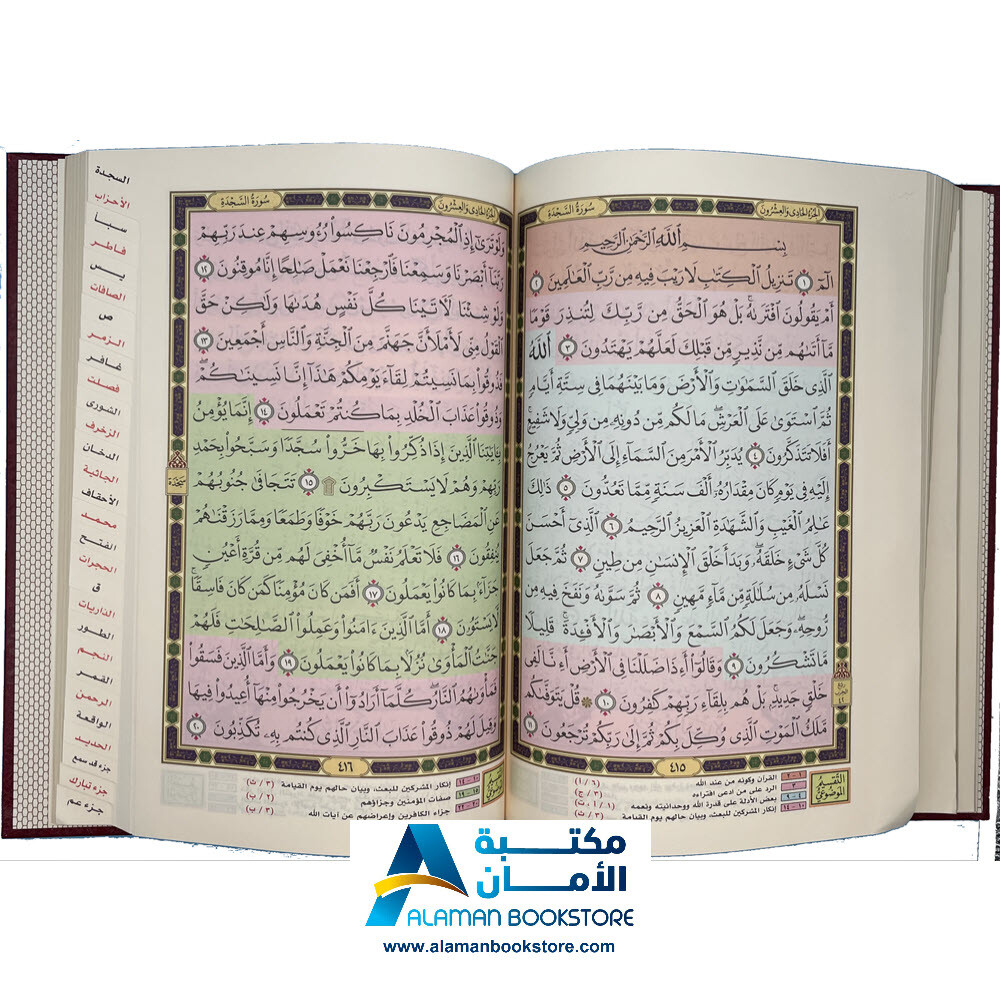 الجزء الحادي والعشرون
سورة السجدة
بسم الله الرحمن الرحيم
الٓمٓ ١ تَنزِيلُ ٱلْكِتَٰبِ لَا رَيْبَ فِيهِ مِن رَّبِّ ٱلْعَٰلَمِينَ ٢
أَمْ يَقُولُونَ ٱفْتَرَىٰهُ بَلْ هُوَ ٱلْحَقُّ مِن رَّبِّكَ لِتُنذِرَ قَوْمًا
مَّآ أَتَىٰهُم مِّن نَّذِيرٍ مِّن قَبْلِكَ لَعَلَّهُمْ يَهْتَدُونَ ٣ ٱللَّهُ
ٱلَّذِى خَلَقَ ٱلسَّمَٰوَٰتِ وَٱلْأَرْضَ وَمَا بَيْنَهُمَا فِى سِتَّةِ أَيَّامٍ
ثُمَّ ٱسْتَوَىٰ عَلَى ٱلْعَرْشِ مَا لَكُم مِّن دُونِهِۦ مِن وَلِىٍّ وَلَا شَفِيعٍ
أَفَلَا تَتَذَكَّرُونَ ٤ يُدَبِّرُ ٱلْأَمْرَ مِنَ ٱلسَّمَآءِ إِلَى ٱلْأَرْضِ ثُمَّ يَعْرُجُ
إِلَيْهِ فِى يَوْمٍ كَانَ مِقْدَارُهُۥٓ أَلْفَ سَنَةٍ مِّمَّا تَعُدُّونَ ٥ ذَٰلِكَ
عَٰلِمُ ٱلْغَيْبِ وَٱلشَّهَٰدَةِ ٱلْعَزِيزُ ٱلرَّحِيمُ ٦ ٱلَّذِىٓ أَحْسَنَ
كُلَّ شَىْءٍ خَلَقَهُۥ وَبَدَأَ خَلْقَ ٱلْإِنسَٰنِ مِن طِينٍ ٧ ثُمَّ جَعَلَ
نَسْلَهُۥ مِن سُلَٰلَةٍ مِّن مَّآءٍ مَّهِينٍ ٨ ثُمَّ سَوَّىٰهُ وَنَفَخَ فِيهِ مِن
رُّوحِهِۦ وَجَعَلَ لَكُمُ ٱلسَّمْعَ وَٱلْأَبْصَٰرَ وَٱلْأَفْـِٔدَةَ قَلِيلًا
مَّا تَشْكُرُونَ ٩ وَقَالُوٓا۟ أَءِذَا ضَلَلْنَا فِى ٱلْأَرْضِ أَءِنَّا لَفِى
خَلْقٍ جَدِيدٍ بَلْ هُم بِلِقَآءِ رَبِّهِمْ كَٰفِرُونَ ١٠ ۞ قُلْ يَتَوَفَّىٰكُم
مَّلَكُ ٱلْمَوْتِ ٱلَّذِى وُكِّلَ بِكُمْ ثُمَّ إِلَىٰ رَبِّكُمْ تُرْجَعُونَ ١١
٤١٥
التقسيم الموضوعي
١-٢ القرآن وكونه من عند الله (١ / ٦)
٣ الرد على من ادعى افتراءه (ج / ٣)
٤-٩ بعض الأدلة على قدرة الله ووحدانيته ونعمه
١٠-١٤ إنكار المشركين للبعث، وبيان حالهم يوم القيامة (٣ / ث)
الجزء الحادي والعشرون
سورة السجدة
وَلَوْ تَرَىٰٓ إِذِ ٱلْمُجْرِمُونَ نَاكِسُوا۟ رُءُوسِهِمْ عِندَ رَبِّهِمْ
رَبَّنَآ أَبْصَرْنَا وَسَمِعْنَا فَٱرْجِعْنَا نَعْمَلْ صَٰلِحًا إِنَّا مُوقِنُونَ ١٢
وَلَوْ شِئْنَا لَءَاتَيْنَا كُلَّ نَفْسٍ هُدَىٰهَا وَلَٰكِنْ حَقَّ
ٱلْقَوْلُ مِنِّى لَأَمْلَأَنَّ جَهَنَّمَ مِنَ ٱلْجِنَّةِ وَٱلنَّاسِ أَجْمَعِينَ ١٣
فَذُوقُوا۟ بِمَا نَسِيتُمْ لِقَآءَ يَوْمِكُمْ هَٰذَآ إِنَّا نَسِينَٰكُمْ
وَذُوقُوا۟ عَذَابَ ٱلْخُلْدِ بِمَا كُنتُمْ تَعْمَلُونَ ١٤ إِنَّمَا يُؤْمِنُ
بِـَٔايَٰتِنَا ٱلَّذِينَ إِذَا ذُكِّرُوا۟ بِهَا خَرُّوا۟ سُجَّدًا وَسَبَّحُوا۟ بِحَمْدِ
رَبِّهِمْ وَهُمْ لَا يَسْتَكْبِرُونَ ۩ ١٥ تَتَجَافَىٰ جُنُوبُهُمْ
عَنِ ٱلْمَضَاجِعِ يَدْعُونَ رَبَّهُمْ خَوْفًا وَطَمَعًا وَمِمَّا رَزَقْنَٰهُمْ
يُنفِقُونَ ١٦ فَلَا تَعْلَمُ نَفْسٌ مَّآ أُخْفِىَ لَهُم مِّن قُرَّةِ أَعْيُنٍ
جَزَآءًۢ بِمَا كَانُوا۟ يَعْمَلُونَ ١٧ أَفَمَن كَانَ مُؤْمِنًا كَمَن كَانَ فَاسِقًا
لَّا يَسْتَوُۥنَ ١٨ أَمَّا ٱلَّذِينَ ءَامَنُوا۟ وَعَمِلُوا۟ ٱلصَّٰلِحَٰتِ فَلَهُمْ
جَنَّٰتُ ٱلْمَأْوَىٰ نُزُلًۢا بِمَا كَانُوا۟ يَعْمَلُونَ ١٩ وَأَمَّا ٱلَّذِينَ فَسَقُوا۟
فَمَأْوَىٰهُمُ ٱلنَّارُ كُلَّمَآ أَرَادُوٓا۟ أَن يَخْرُجُوا۟ مِنْهَآ أُعِيدُوا۟ فِيهَا
وَقِيلَ لَهُمْ ذُوقُوا۟ عَذَابَ ٱلنَّارِ ٱلَّذِى كُنتُم بِهِۦ تُكَذِّبُونَ ٢٠
سجدة
٤١٦
إنكار المشركين للبعث، وبيان حالهم يوم القيامة (٣ / ث)
صفات المؤمنين وجزاؤهم (٢ / ب)
جزاء الكافرين وإعراضهم عن آيات الله (٣ / ب)
السجدة
الأحزاب
سبأ
فاطر
يس
الصافات
ص
الزمر
غافر
فصلت
الشورى
الزخرف
الدخان
الجاثية
الأحقاف
محمد
الفتح
الحجرات
ق
الذاريات
الطور
النجم
القمر
الرحمن
الواقعة
الحديد
جزء قد سمع
جزء تبارك
جزء عم
مكتبة
الأمان
ALAMAN BOOKSTORE
www.alamanbookstore.com